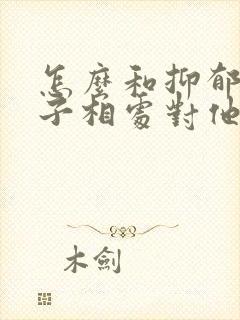 怎麼和抑郁
子相處對他
木劍